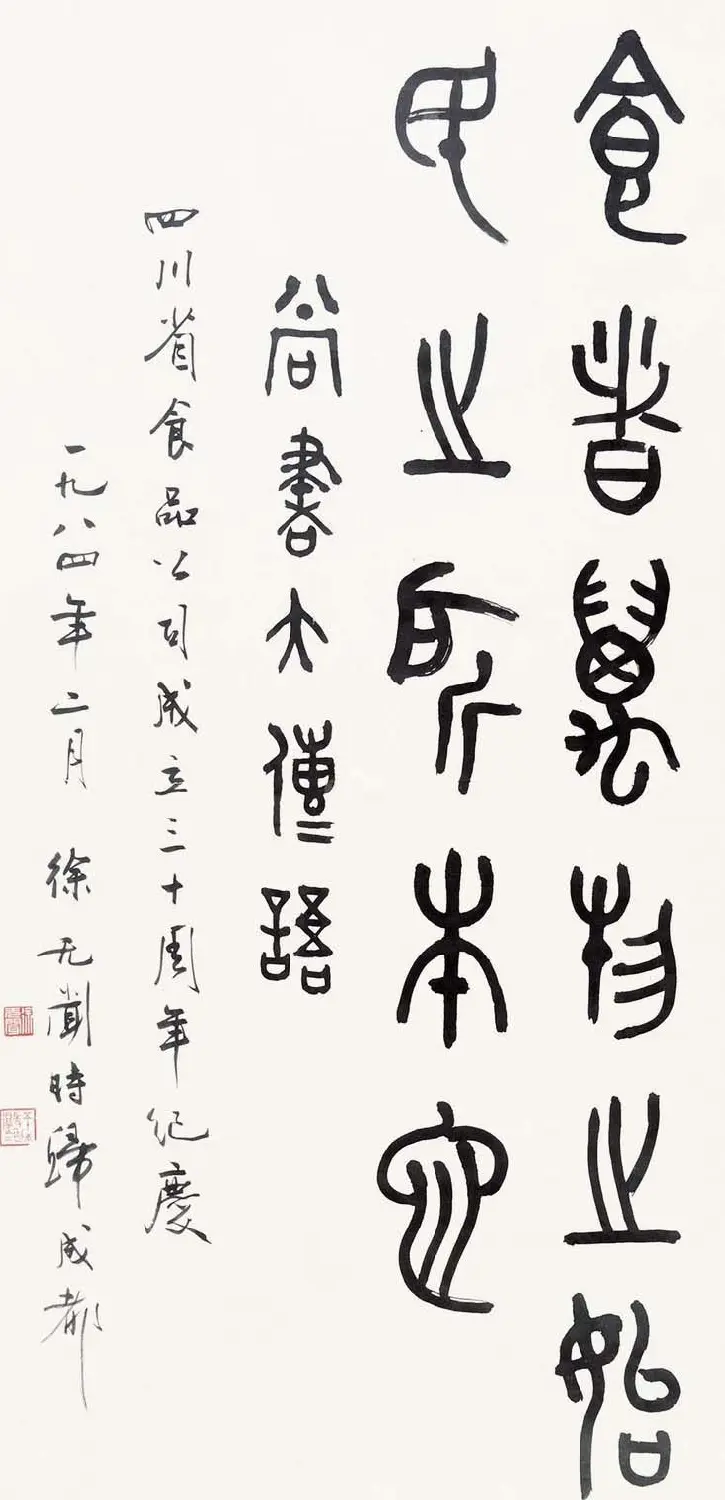 食者萬物之始
民之所本也
尚書大傳語
四川省食品公司成立三十周年紀慶
一九八四年二月 徐无聞時歸成都